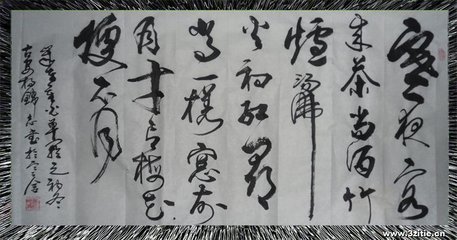 寒夜客
来茶当酒竹
爐湯沸
火初红尋
常一樣窓前
月才有梅花
便不同
www.3zitie.cn